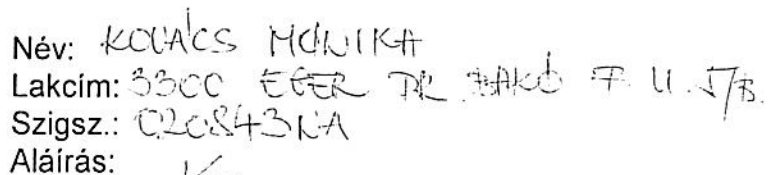 Név: KOVÁCS MONIKA
Lakcím: 3300 EGER DR. BAKÓ F. U. 5/B.
Szigsz.: 020843NA
Aláírás: